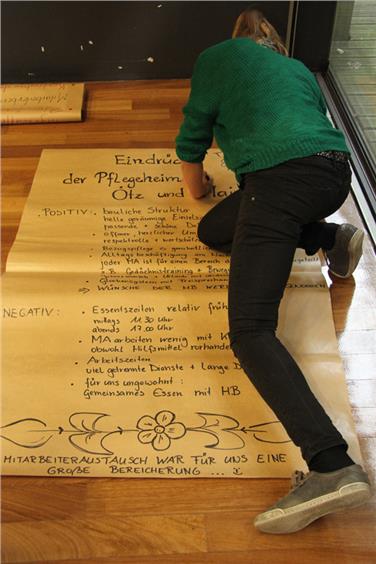 Eindrü
der Pflegeheim
Ötz und
POSITIV: • bauliche Struktur
helle geräumige
passende + schöne
• offener, herzlicher Um
respektvolle + wertschä
• Bezugspflege
• Alltagsbeschäftigung am
jeder MA ist für einen Bereich
z.B. Gedächtnistraining + Beweg
⇒ WÜNSCHE DER HB WER
NEGATIV: • Essenszeiten relativ früh
mittags 11.30 Uhr
abends 17.00 Uhr
• MA arbeiten wenig mit
obwohl Hilfsmittel vorhanden
• Arbeitszeiten
viel getrennte Dienste + lange D
• für uns ungewohnt:
gemeinsames Essen mit HB
MITARBEITERAUSTAUSCH WAR FÜR UNS EINE
GROßE BEREICHERUNG ...